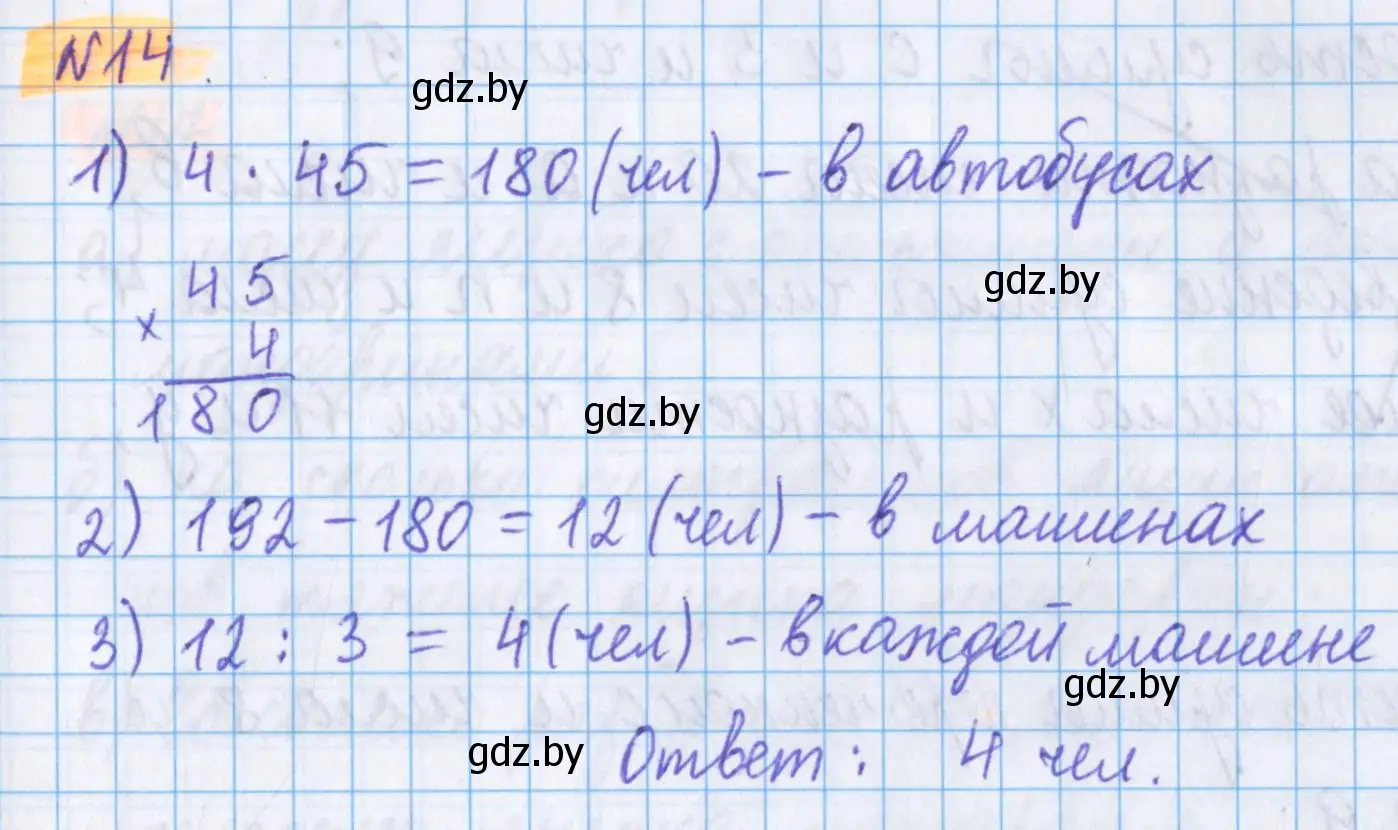 N14
gdz.by
1) 4 · 45 = 180 (чел) - в автобусах
gdz.by
45
× 4
180
gdz.by
2) 192 - 180 = 12 (чел) - в машинах
3) 12 : 3 = 4 (чел) - в каждой машине
gdz.by
gdz.by
Ответ: 4 чел.